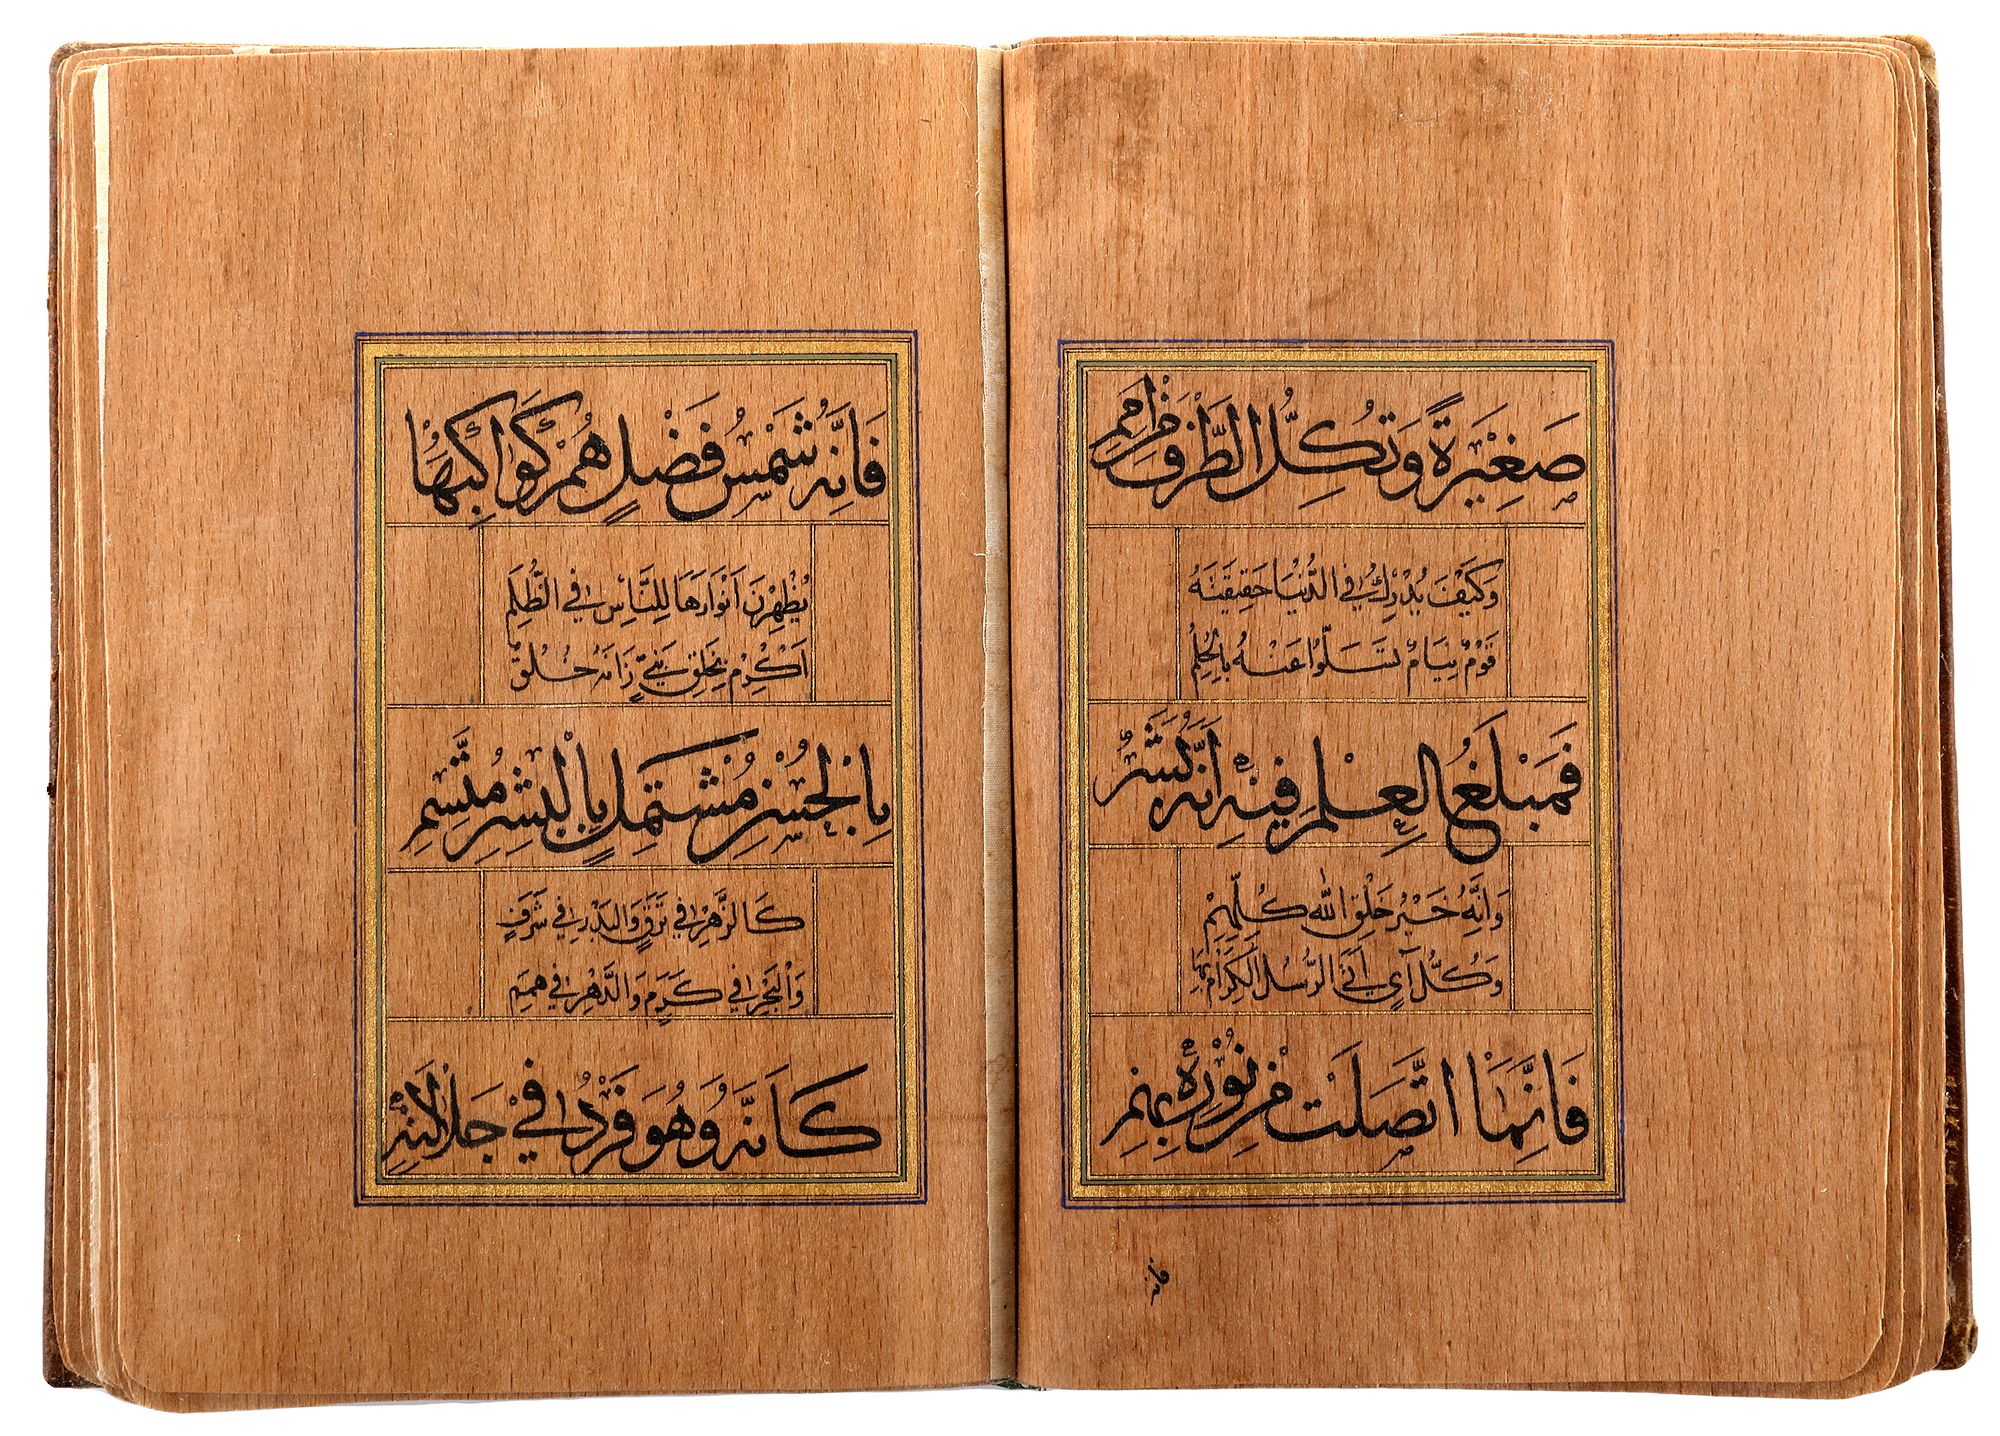 صَغِيْرَةً وَتُكِلُّ الطَّرْفَ مِنْ اَمَمِ
وَكَيْفَ يُدْرِكُ فِي الدُّنْيَا حَقِيْقَتَهُ
قَوْمٌ نِيَامٌ تَسَلَّوْا عَنْهُ بِالْحُلُمِ
فَمَبْلَغُ الْعِلْمِ فِيْهِ اَنَّهُ بَشَرٌ
وَاَنَّهُ خَيْرُ خَلْقِ اللّٰهِ كُلِّهِمِ
وَكُلُّ اٰيٍ اَتَى الرُّسُلُ الْكِرَامُ بِهَا
فَاِنَّمَا اتَّصَلَتْ مِنْ نُوْرِهٖ بِهِمِ
فانه
فَاِنَّهُ شَمْسُ فَضْلٍ هُمْ كَوَاكِبُهَا
يُظْهِرْنَ اَنْوَارَهَا لِلنَّاسِ فِي الظُّلَمِ
اَكْرِمْ بِخَلْقِ نَبِيٍّ زَانَهُ خُلُقٌ
بِالْحُسْنِ مُشْتَمِلٍ بِالْبِشْرِ مُتَّسِمِ
كَالزَّهْرِ فِي تَرَفٍ وَالْبَدْرِ فِي شَرَفٍ
وَالْبَحْرِ فِي كَرَمٍ وَالدَّهْرِ فِي هِمَمِ
كَاَنَّهُ وَهُوَ فَرْدٌ فِيْ جَلَالَتِهٖ